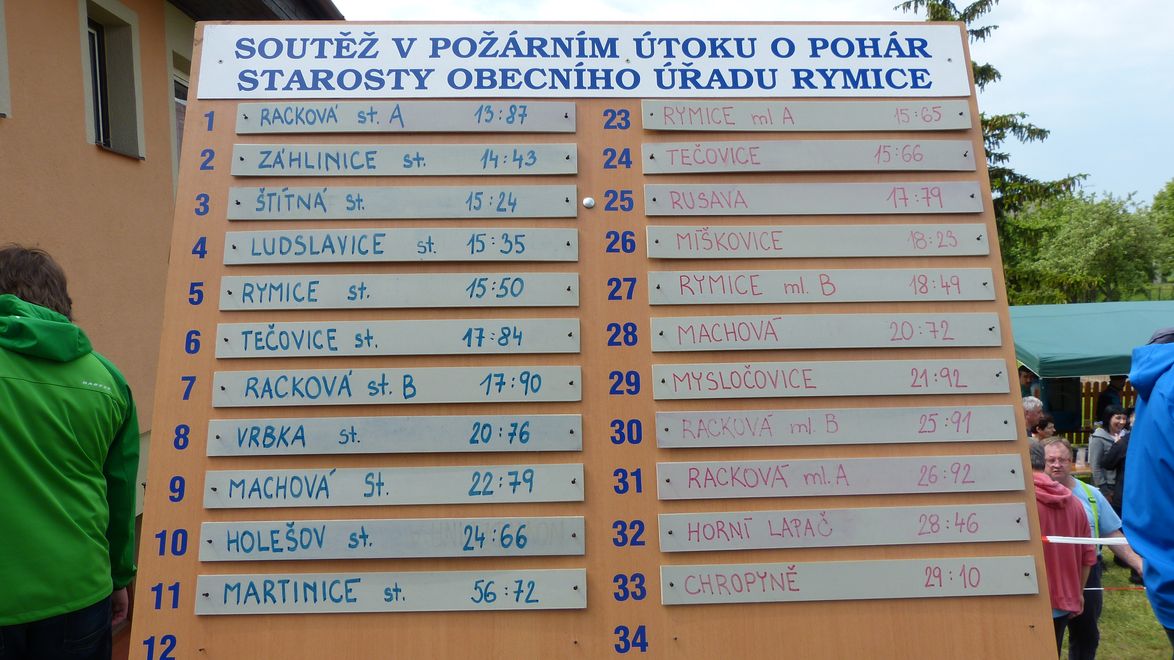 SOUTĚŽ V POŽÁRNÍM ÚTOKU O POHÁR
STAROSTY OBECNÍHO ÚŘADU RYMICE
1 RACKOVÁ st. A 13:87
2 ZÁHLINICE st. 14:43
3 ŠTÍTNÁ st. 15:24
4 LUDSLAVICE st. 15:35
5 RYMICE st. 15:50
6 TEČOVICE st. 17:84
7 RACKOVÁ st. B 17:90
8 VRBKA st. 20:76
9 MACHOVÁ St. 22:79
10 HOLEŠOV st. 24:66
11 MARTINICE st. 56:72
12
23 RYMICE ml A 15:65
24 TEČOVICE 15:66
25 RUSAVA 17:79
26 MÍŠKOVICE 18:23
27 RYMICE ml. B 18:49
28 MACHOVÁ 20:72
29 MYSLOČOVICE 21:92
30 RACKOVÁ ml. B 25:91
31 RACKOVÁ ml. A 26:92
32 HORNÍ LAPAČ 28:46
33 CHROPYNĚ 29:10
34